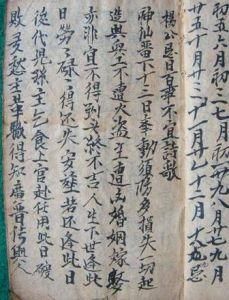 初五六月初三七月初一廿九八月廿七九月
廿五十月廿三十一月廿一十二月十九忌
楊公忌日百事不宜詩歌
神仙留下十三日牽動須防多損失一切起
造與安工不遭火盜主遭凶婚姻嫁娶
亦非宜不得到老終不吉人生下世逢此
日勞々碌得還失安葬若還逢此日
後代兒孫主乞食上官赴任用此日破
敗憂愁主革職得知廣普傳與